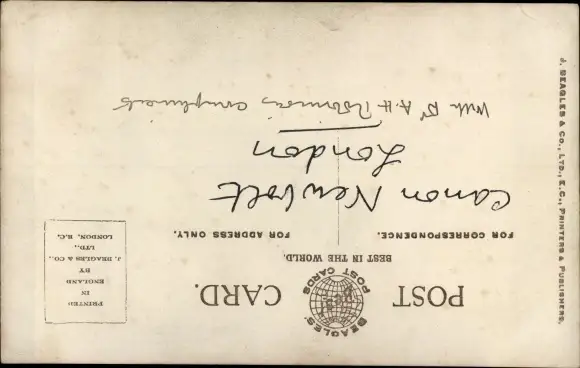 POST CARD.
BEAGLES' POST CARDS
BEST IN THE WORLD.
FOR CORRESPONDENCE. FOR ADDRESS ONLY.
PRINTED
IN
ENGLAND
BY
J. BEAGLES & CO.,
LTD.,
LONDON, E.C.
Canon Newbolt
London
With Dr A. H Robinson's compliments
J. BEAGLES & CO., LTD., E.C., PRINTERS & PUBLISHERS.